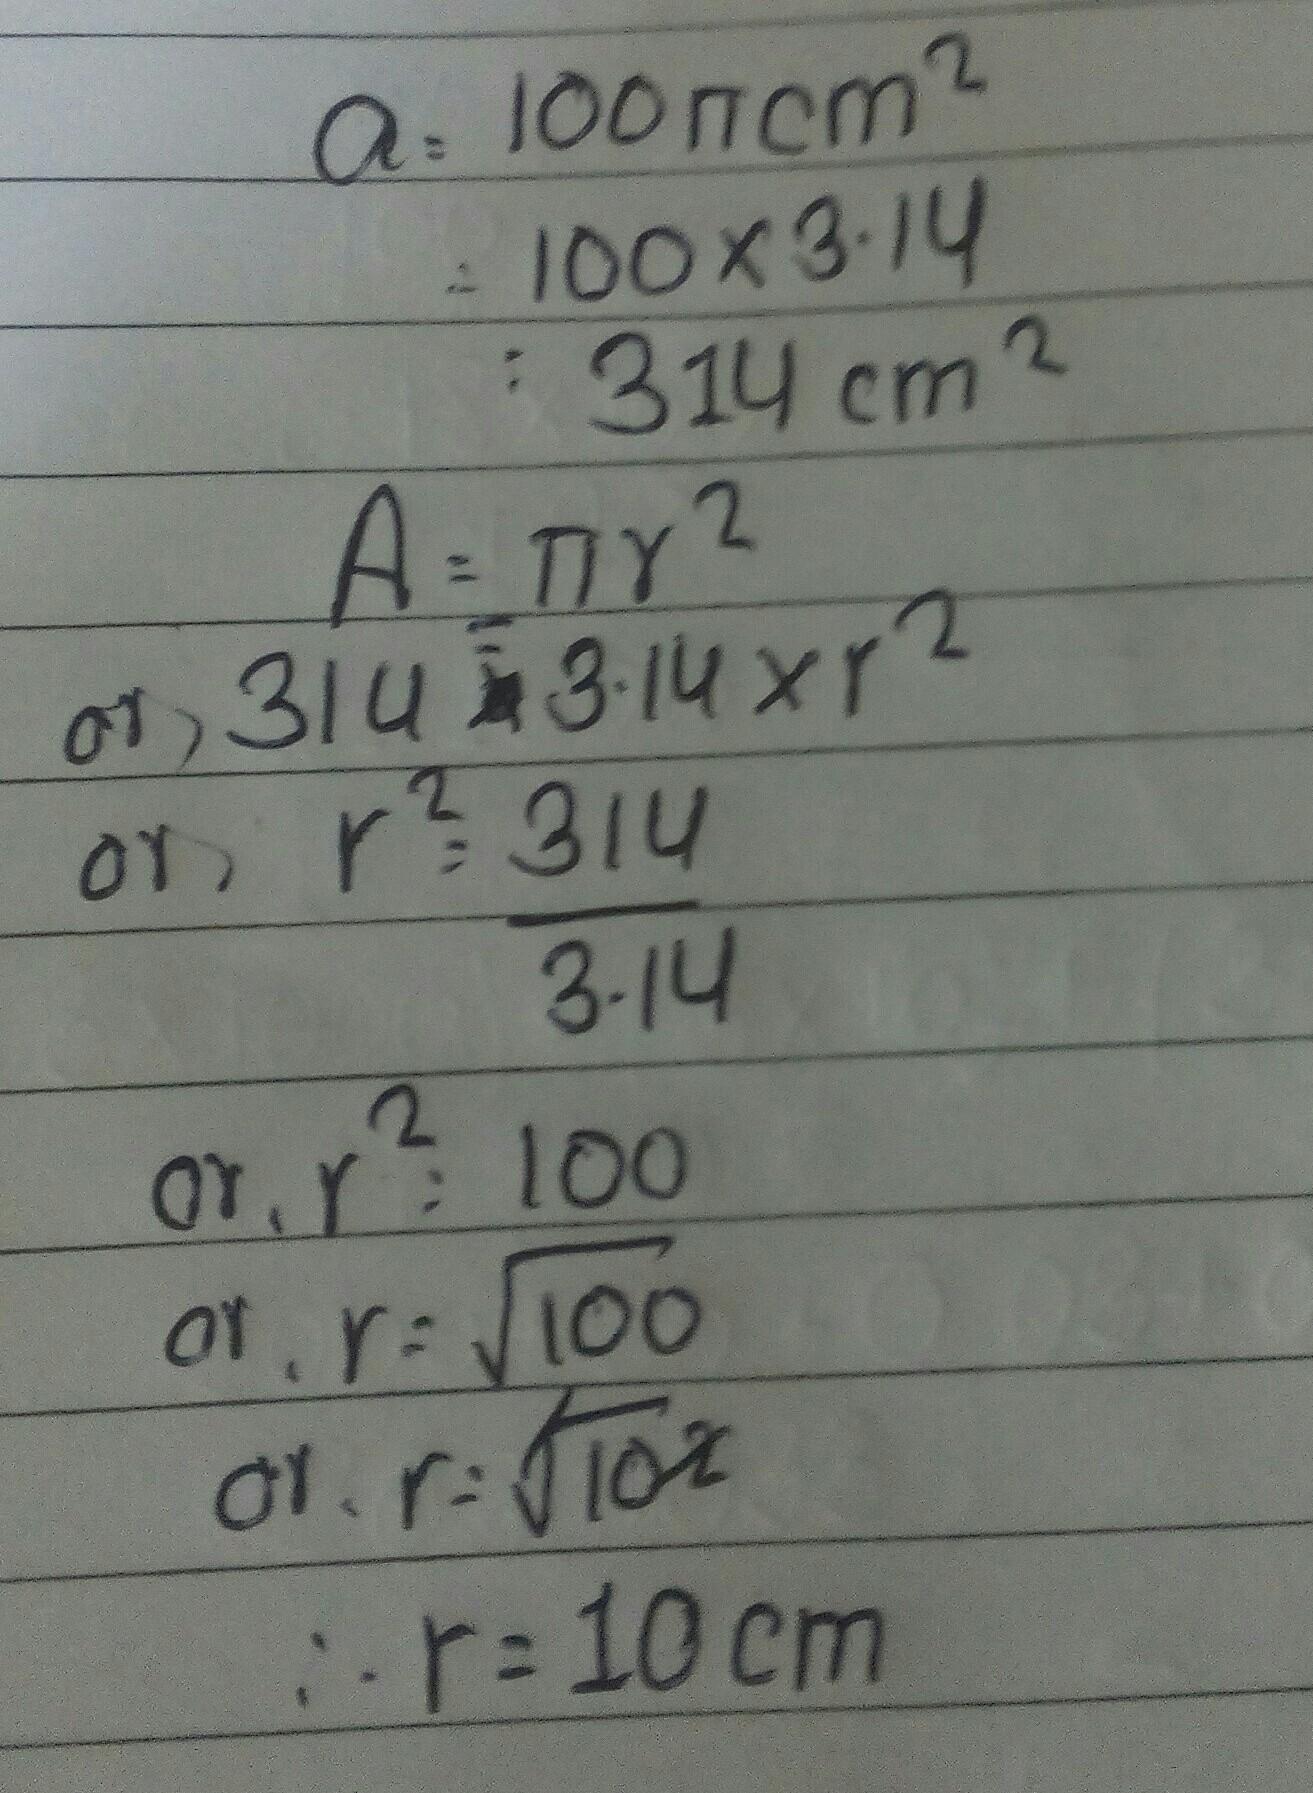 a = 100πcm²
= 100×3.14
= 314 cm²
A = πr²
or, 314 = 3.14 × r²
or, r² = 314
3.14
or, r² = 100
or, r = √100
or, r = √10²
∴ r = 10 cm